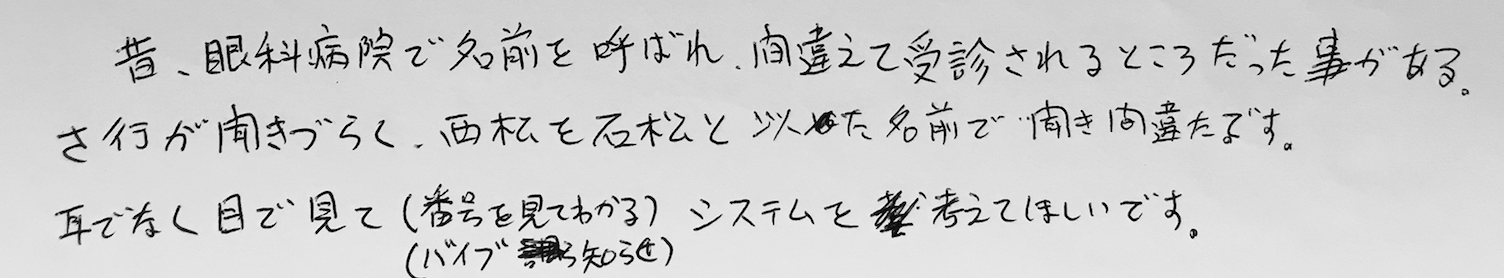 昔、眼科病院で名前を呼ばれ、間違えて受診されるところだった事がある。
さ行が聞きづらく、西松を石松と以た名前で聞き間違たです。
耳でなく目で見て(番号を見てわかる)システムを考えてほしいです。
(バイブ知らせ)